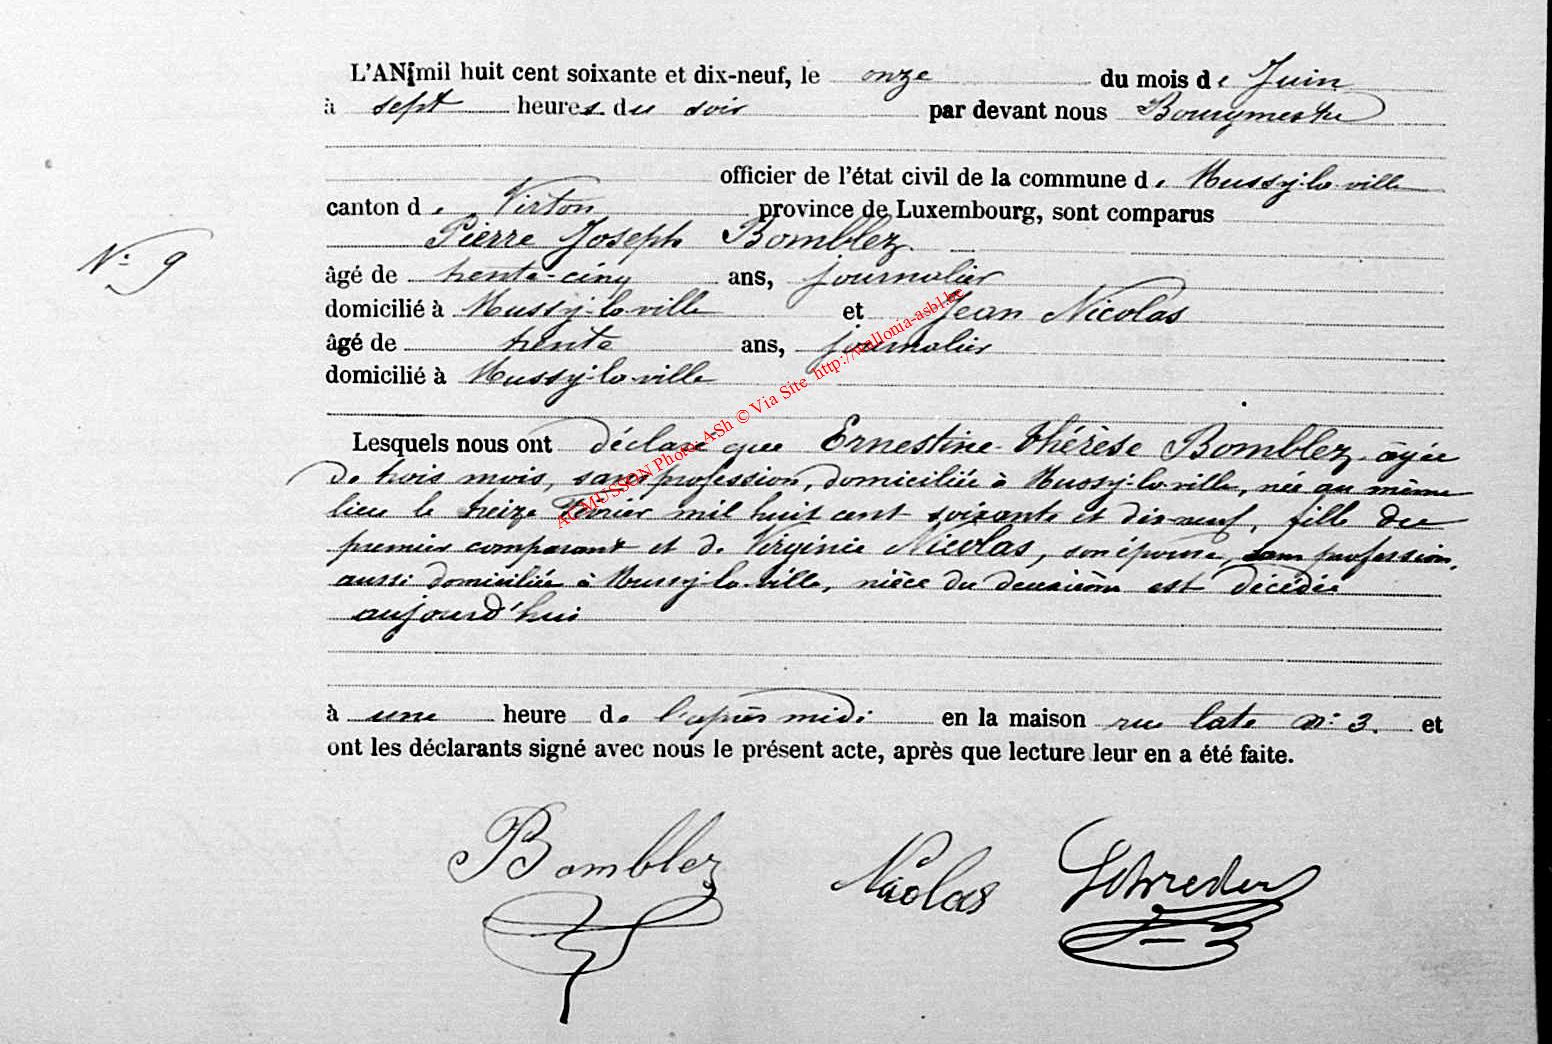 L'AN mil huit cent soixante et dix-neuf, le onze du mois de Juin
à sept heures du soir par devant nous Bourgmestre
officier de l'état civil de la commune de Mussy-la-ville
canton de Virton province de Luxembourg, sont comparus
Pierre Joseph Bomblez
N° 9
âgé de trente-cinq ans, journalier
domicilié à Mussy-la-ville et Jean Nicolas
âgé de trente ans, journalier
domicilié à Mussy-la-ville
Lesquels nous ont déclaré que Ernestine Thérèse Bomblez âgée
de trois mois, sans profession, domiciliée à Mussy-la-ville, née au même
lieu le treize Février mil huit cent soixante et dix-neuf, fille du
premier comparant et de Virginie Nicolas, son épouse, sans profession,
aussi domiciliée à Mussy-la-ville, nièce du deuxième est décédée
aujourd'hui
à une heure de l'après midi en la maison rue n° 3. et
ont les déclarants signé avec nous le présent acte, après que lecture leur en a été faite.
Bomblez Nicolas Schreder
ACMUSSON Photo: ASh © Via Site http://wallonia-asbl.be